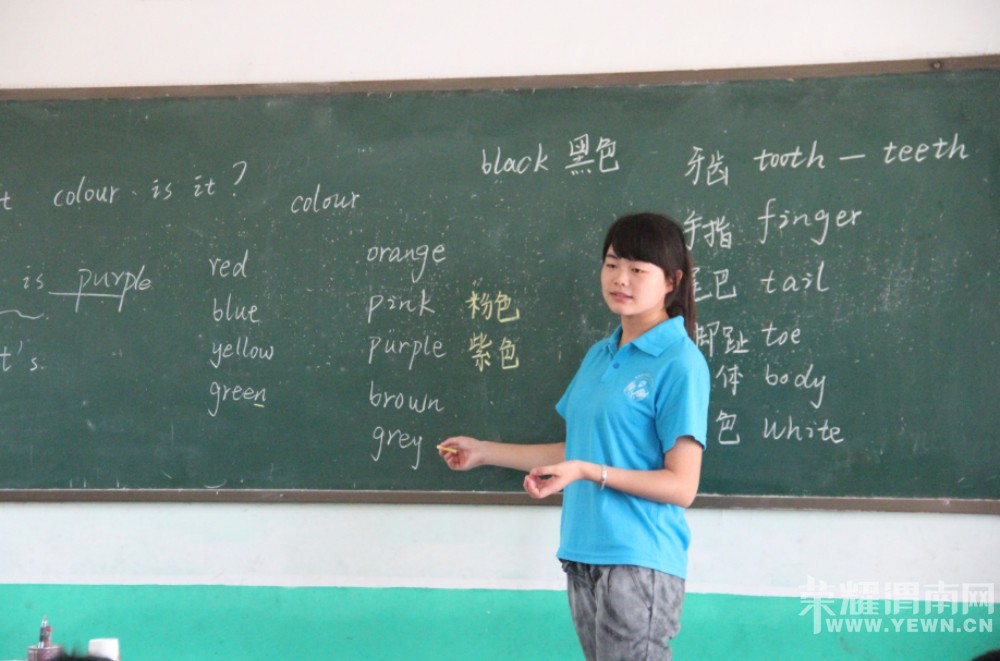 t colour is it?
is purple
t's
colour
red
blue
yellow
green
orange
pink 粉色
purple 紫色
brown
grey
black 黑色
牙齿 tooth — teeth
手指 finger
尾巴 tail
脚趾 toe
体 body
色 white
荣耀渭南网
WWW.YEWN.CN